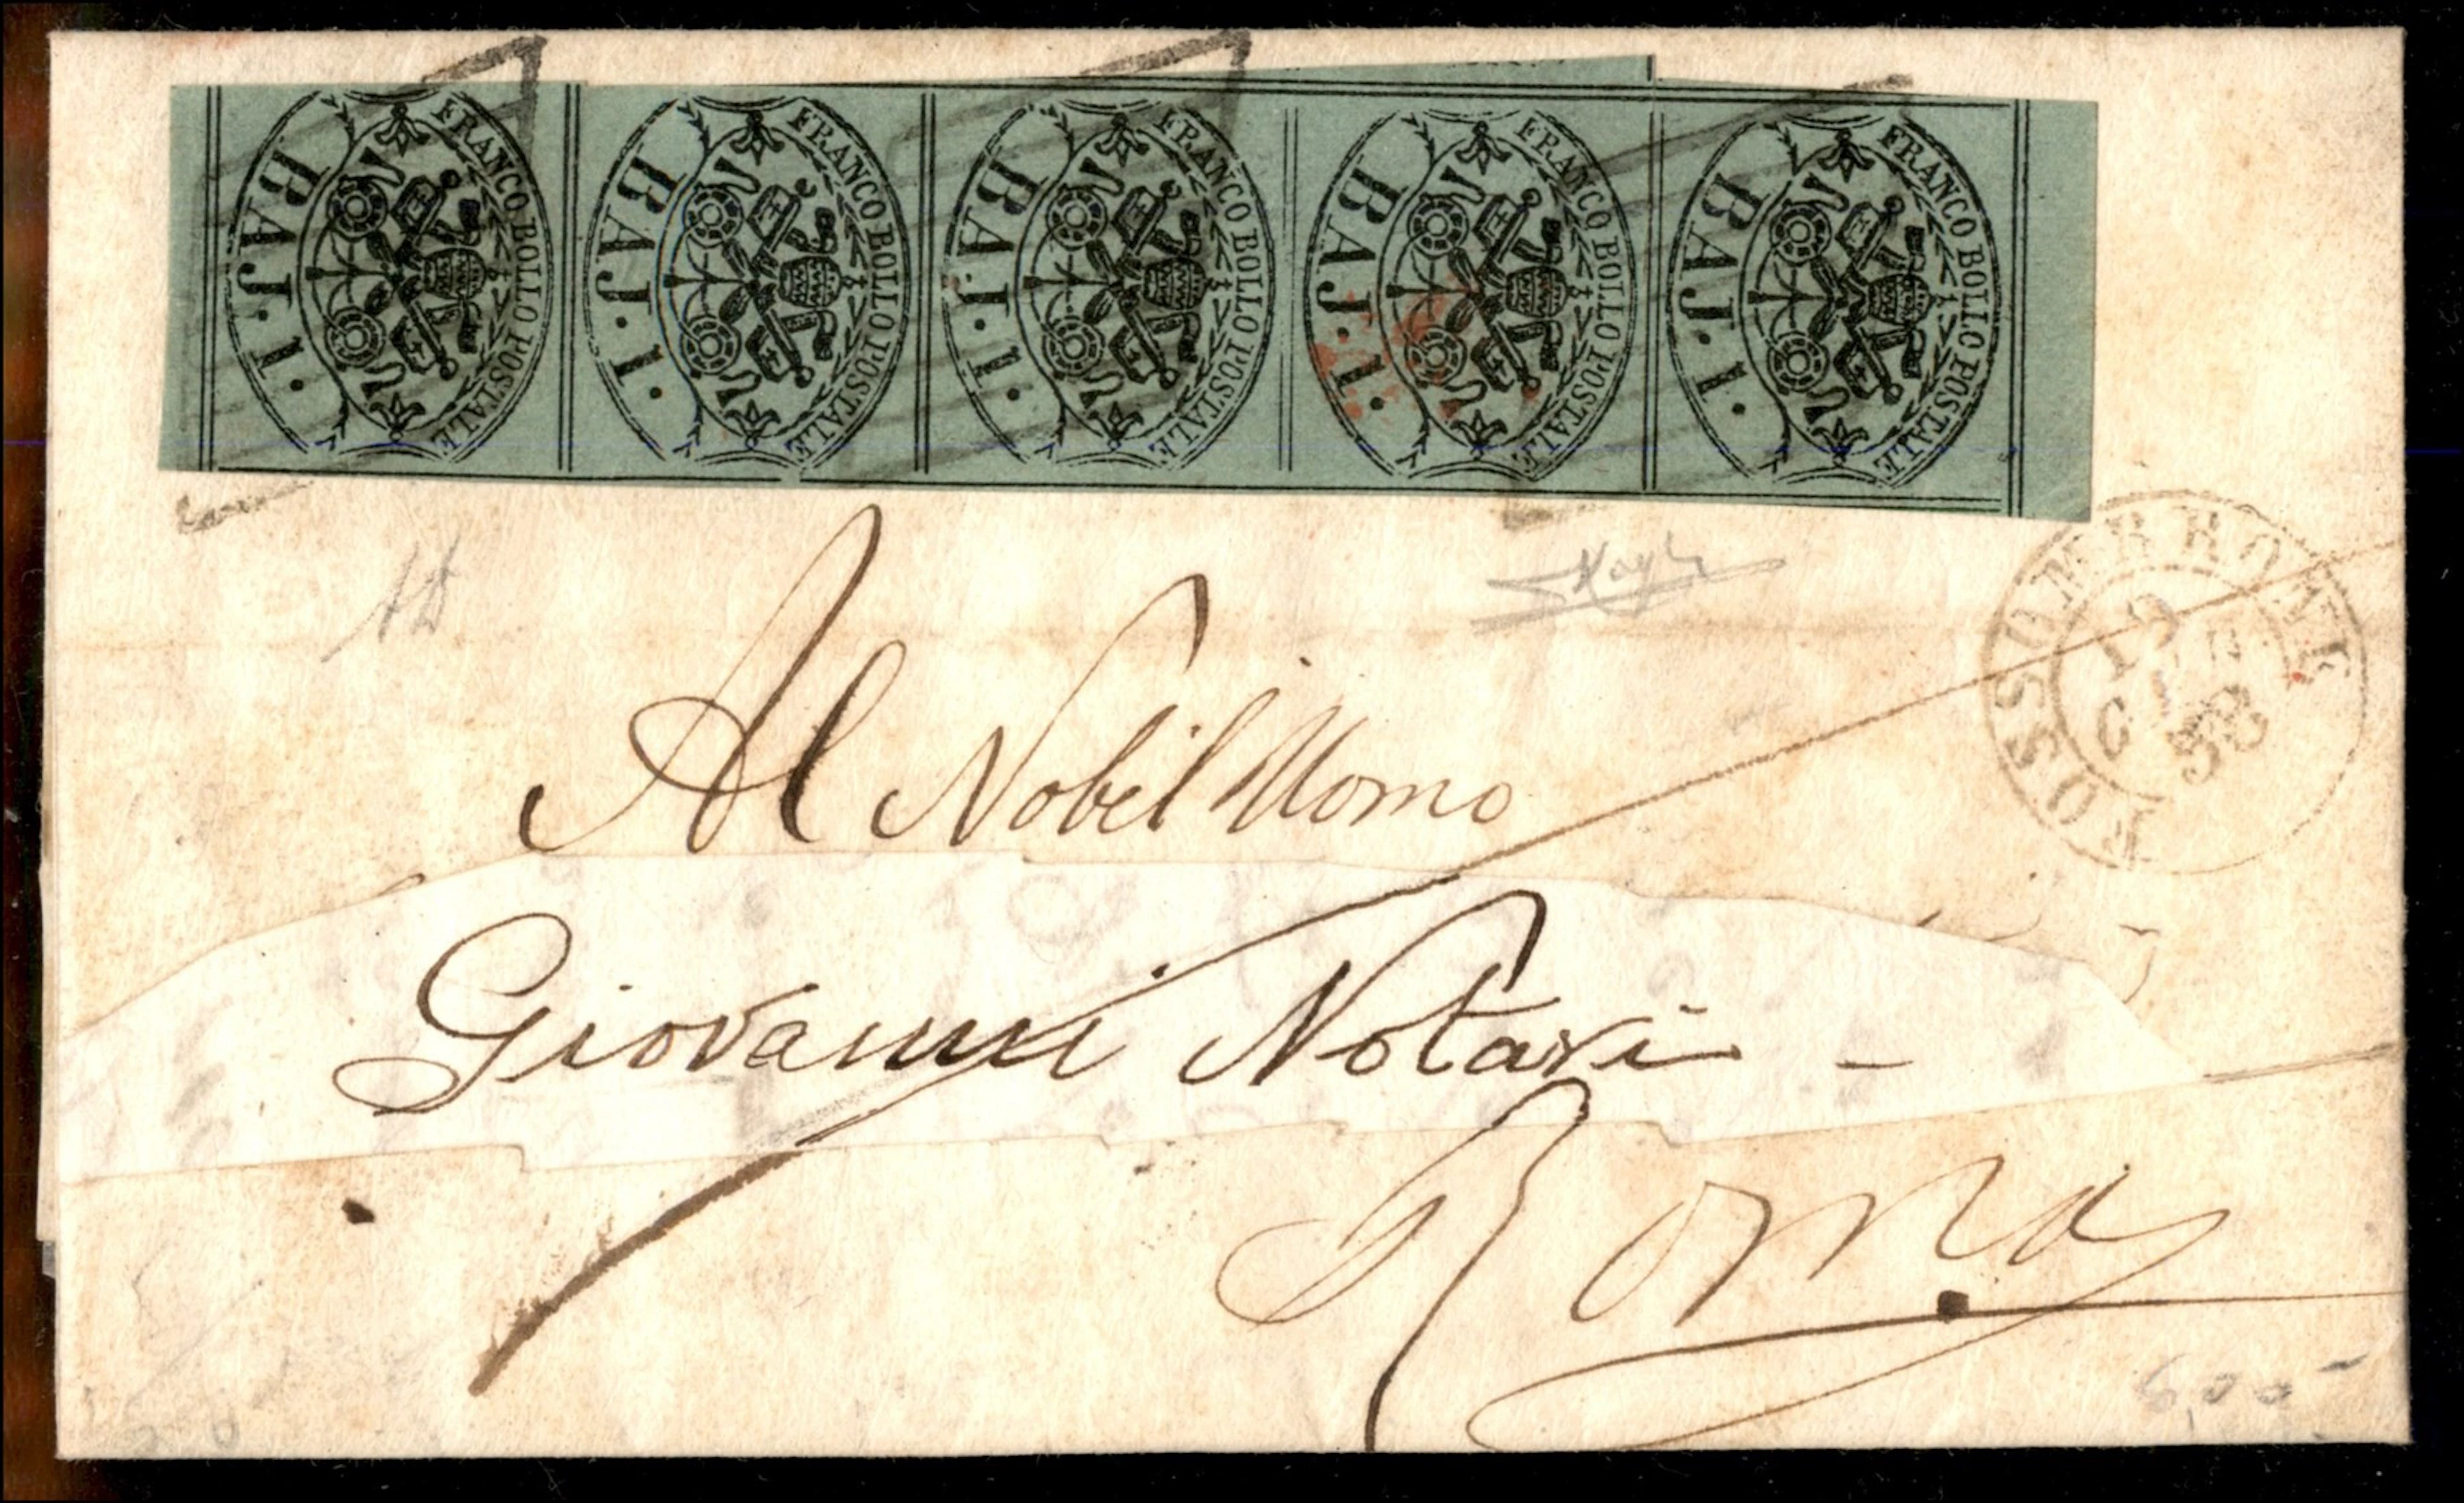 FRANCO BOLLO POSTALE
BAJ. 1.
FRANCO BOLLO POSTALE
BAJ. 1.
FRANCO BOLLO POSTALE
BAJ. 1.
FRANCO BOLLO POSTALE
BAJ. 1.
FRANCO BOLLO POSTALE
BAJ. 1.
FOSSOMBRONE
19
58
Al Nobil Uomo
Giovanni Notari
Roma